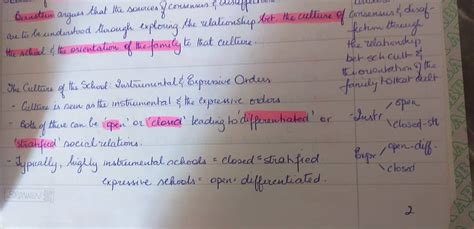 Bernstein argues that the sources of consensus & disaffection
are to be understood through exploring the relationship bet. the culture of
the school & the orientation of the family to that culture.
The Culture of the School: Instrumental & Expressive Orders
- Culture is seen as the instrumental & the expressive orders
- Both of these can be 'open' or 'closed' leading to 'differentiated' or
'stratified' social relations.
- Typically, highly instrumental schools = closed = stratified
expressive schools = open = differentiated.
consensus & disaf-
fection through
the relationship
bet sch cult &
the orientation of the
family to that cult
Instr
open
closed-st
Expr
open-diff.
closed
2